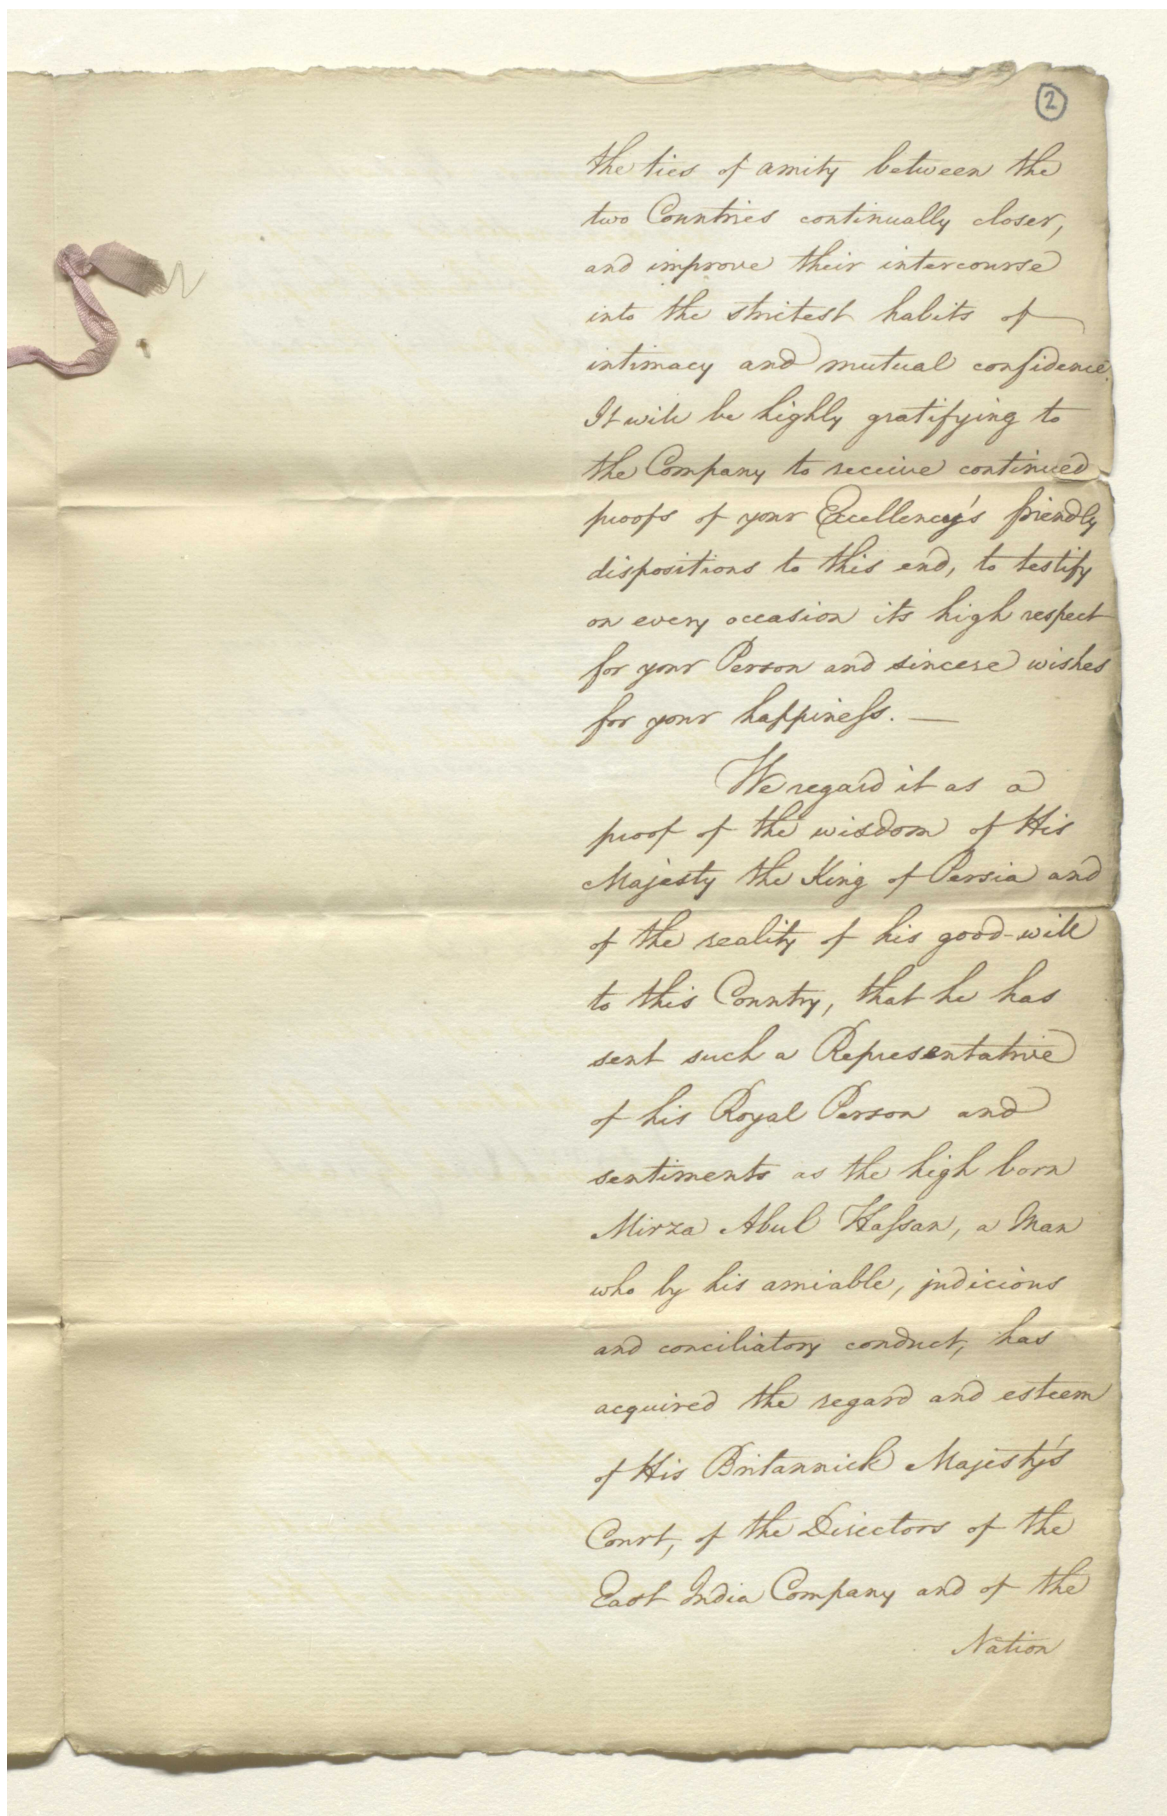 2
the ties of amity between the
two Countries continually closer,
and improve their intercourse
into the strictest habits of
intimacy and mutual confidence.
It will be highly gratifying to
the Company to receive continued
proofs of your Excellency's friendly
dispositions to this end, to testify
on every occasion its high respect
for your Person and sincere wishes
for your happineſs. —
We regard it as a
proof of the wisdom of His
Majesty the King of Persia and
of the reality of his good-will
to this Country, that he has
sent such a Representative
of his Royal Person and
sentiments as the high born
Mirza Abul Haſsan, a Man
who by his amiable, judicious
and conciliatory conduct, has
acquired the regard and esteem
of His Britannick Majesty's
Court, of the Directors of the
East India Company and of the
Nation